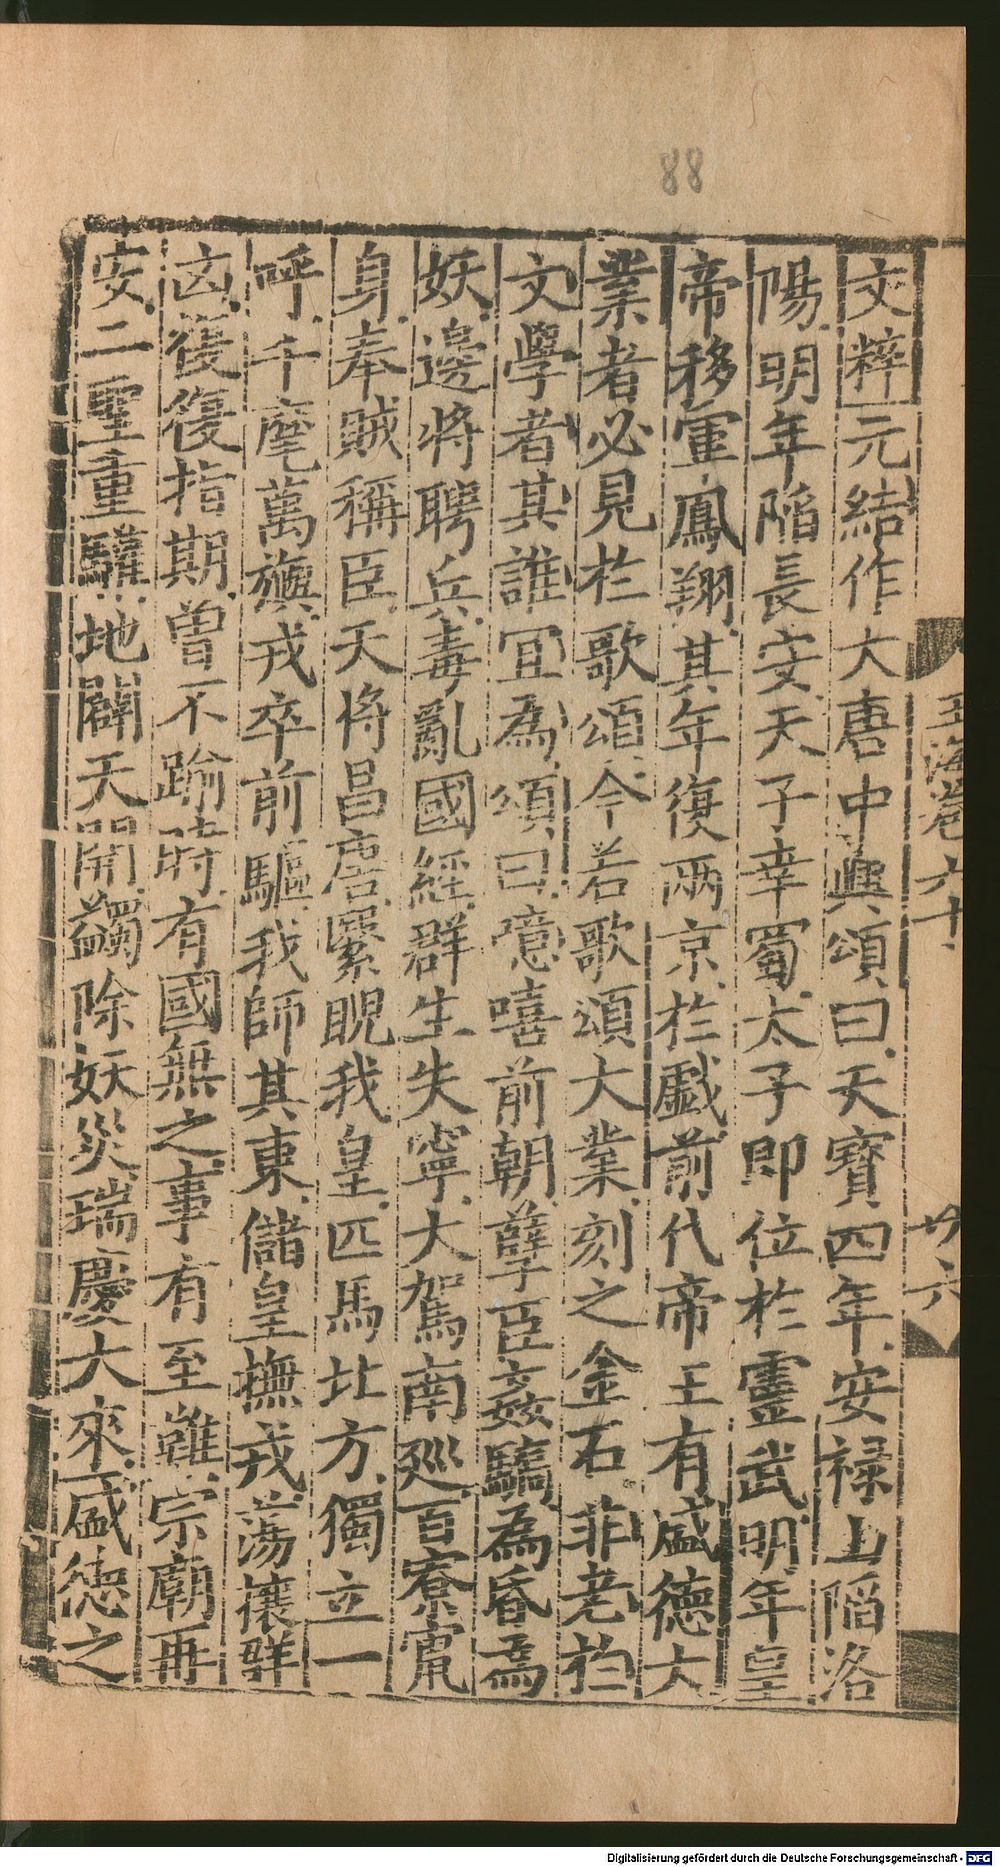 88
文粹元結作大唐中興頌曰天寶四年安祿山陷洛
陽明年陷長安天子幸蜀太子即位於靈武明年皇
帝移軍鳳翔其年復兩京於戲前代帝王有盛德大
業者必見於歌頌今若歌頌大業刻之金石非老於
文學者其誰宜為頌曰噫嘻前朝孽臣姦驕為昏為
妖邊將騁兵毒亂國經群生失寧大駕南巡百寮竄
身奉賊稱臣天將昌唐緊睨我皇匹馬北方獨立一
呼千麾萬旟戎卒前驅我師其東儲皇撫戎蕩攘群
凶復復指期曾不踰時有國無之事有至難宗廟再
安二聖重驩地闢天開蠲除妖災瑞慶大來盛德之
玉海卷六十
廿六
Digitalisierung gefördert durch die Deutsche Forschungsgemeinschaft - DFG